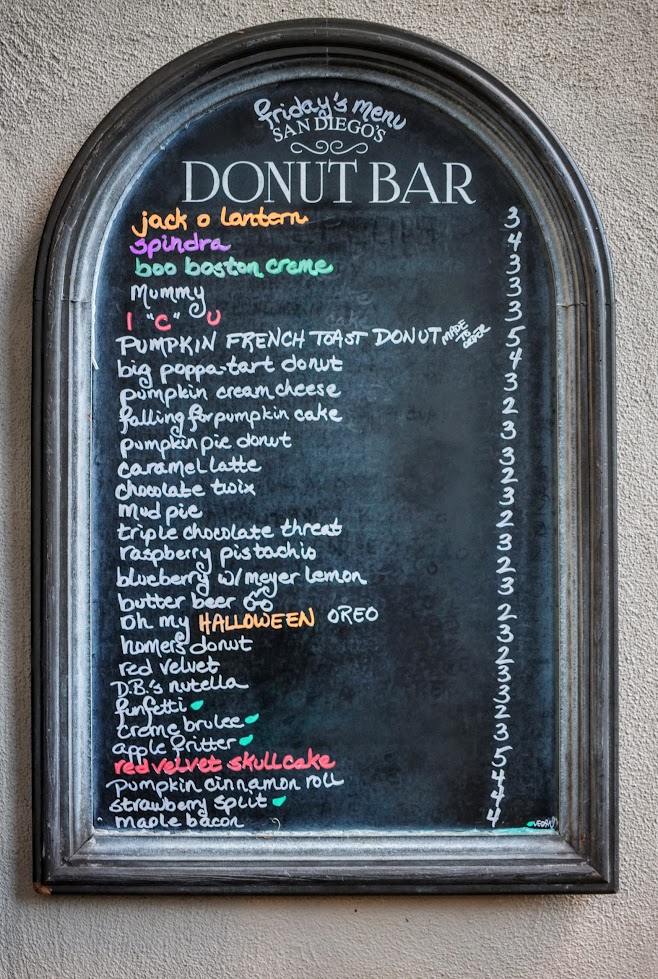 friday's menu
SAN DIEGO'S
DONUT BAR
jack o lantern 3
spindra 4
boo boston creme 3
Mummy 3
I "C" U 3
PUMPKIN FRENCH TOAST DONUT MADE TO ORDER 5
big poppa-tart donut 4
pumpkin cream cheese 3
falling for pumpkin cake 2
pumpkin pie donut 3
caramel latte 3
chocolate twix 2
mud pie 3
triple chocolate threat 2
raspberry pistachio 3
blueberry w/ meyer lemon 2
butter beer 3
oh my HALLOWEEN OREO 2
homers donut 3
red velvet 2
D.B.'s nutella 3
funfetti 3
creme brulee 2
apple fritter 3
red velvet skullcake 5
pumpkin cinnamon roll 4
strawberry split 4
maple bacon 4
VEGAN